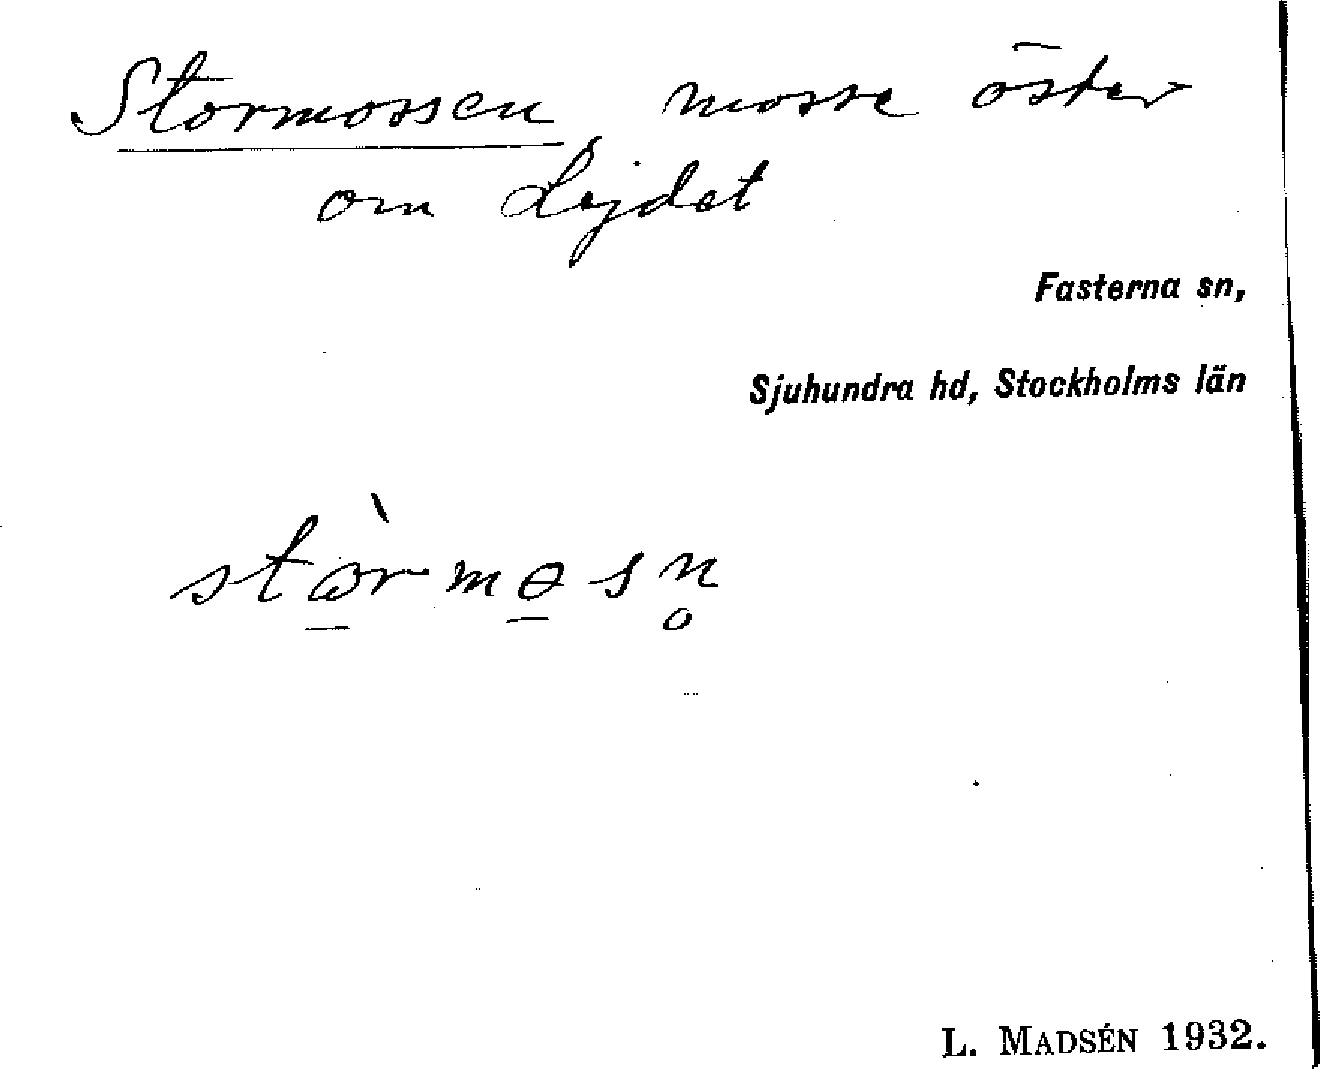 Stormossen mosse öster
om Lejdet
Fasterna sn,
Sjuhundra hd, Stockholms län
L. MADSÉN 1932.